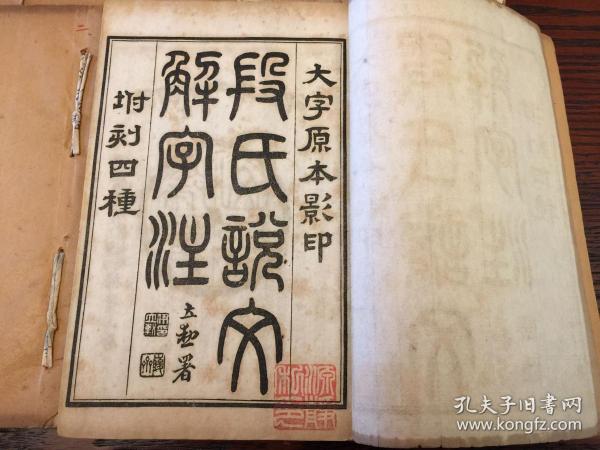 大字原本影印
段氏說文
解字注
坿刻四種
署
孔夫子旧书网
www.kongfz.com